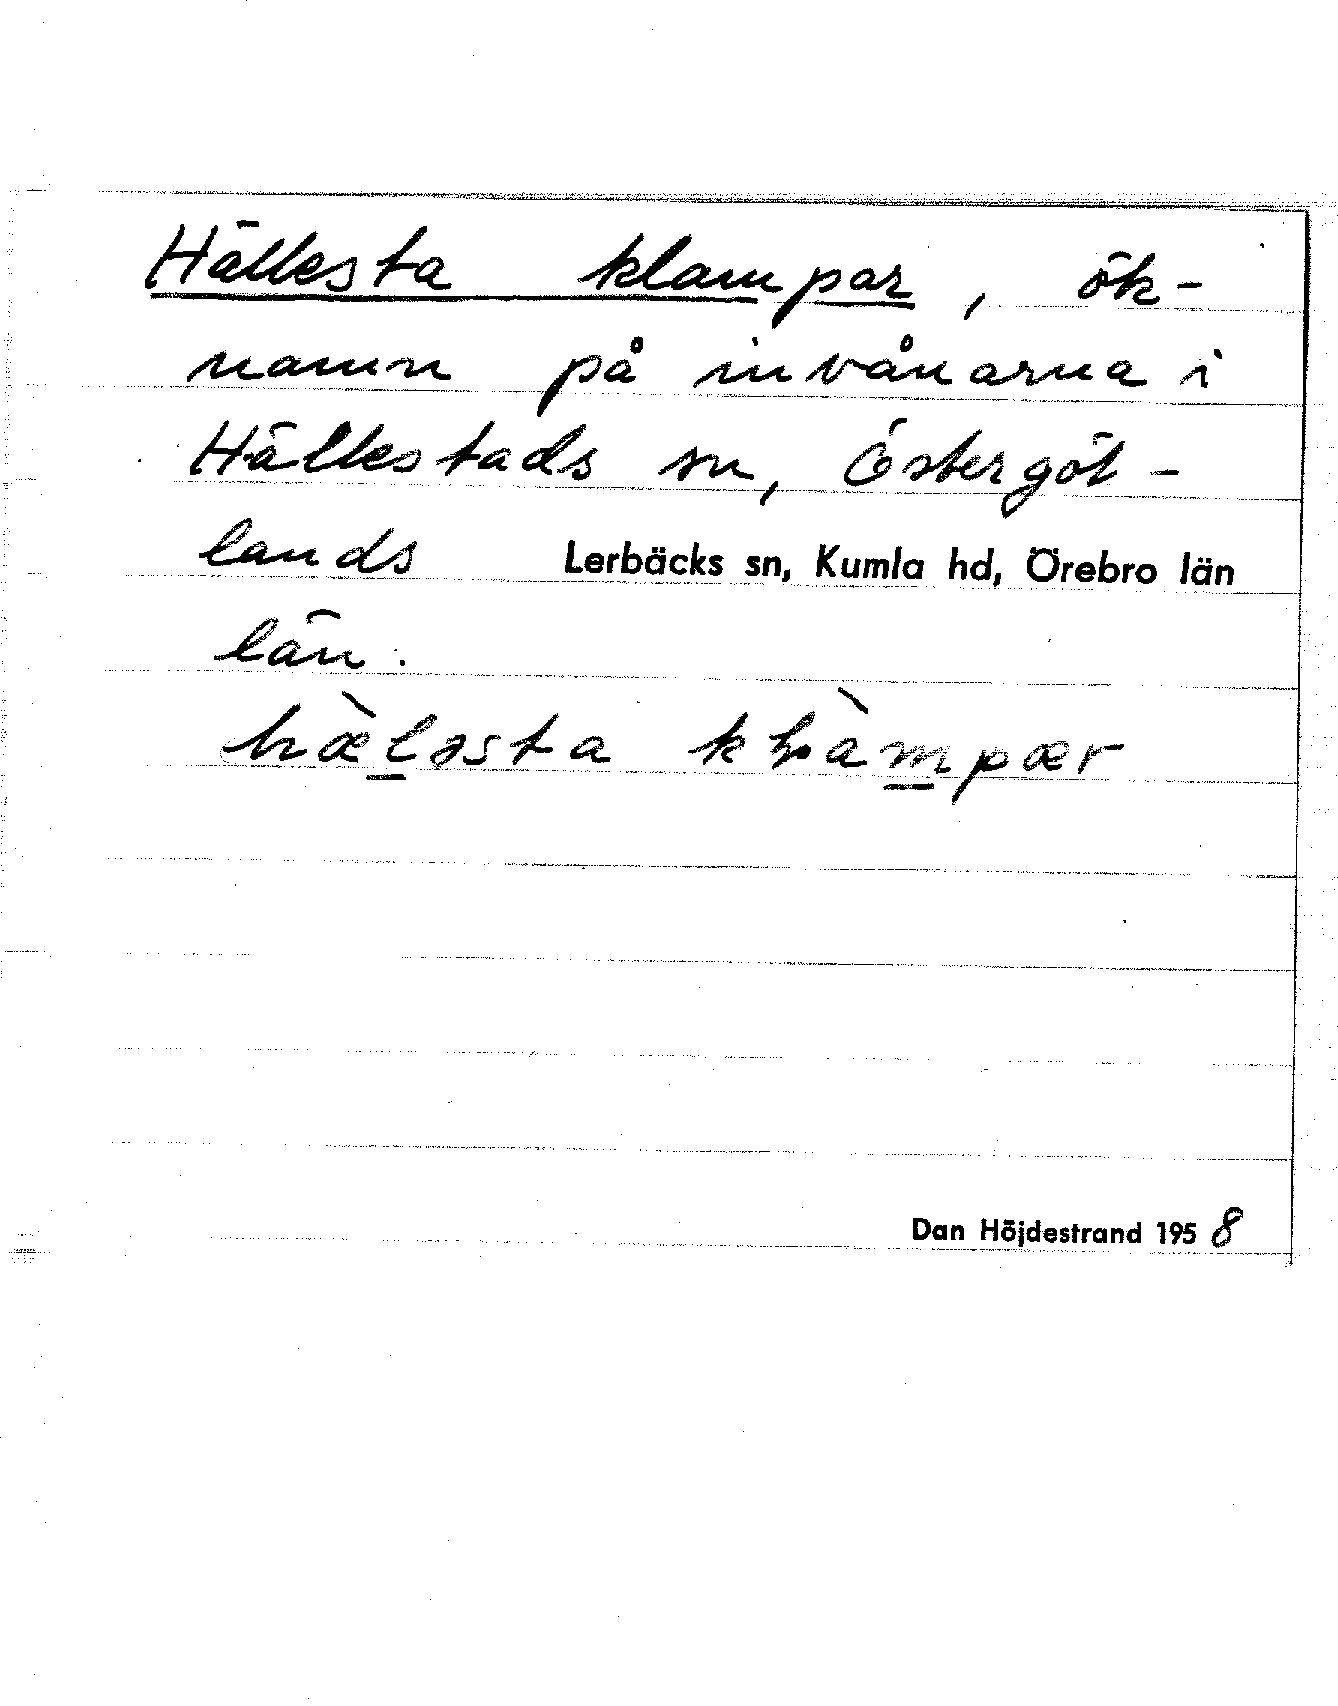 Hällesta klampar, ök-
namn på invånarna i
Hällestads sn, Östergöt-
lands Lerbäcks sn, Kumla hd, Örebro län
län.
hæ̀l̲əsta
Dan Höjdestrand 1958